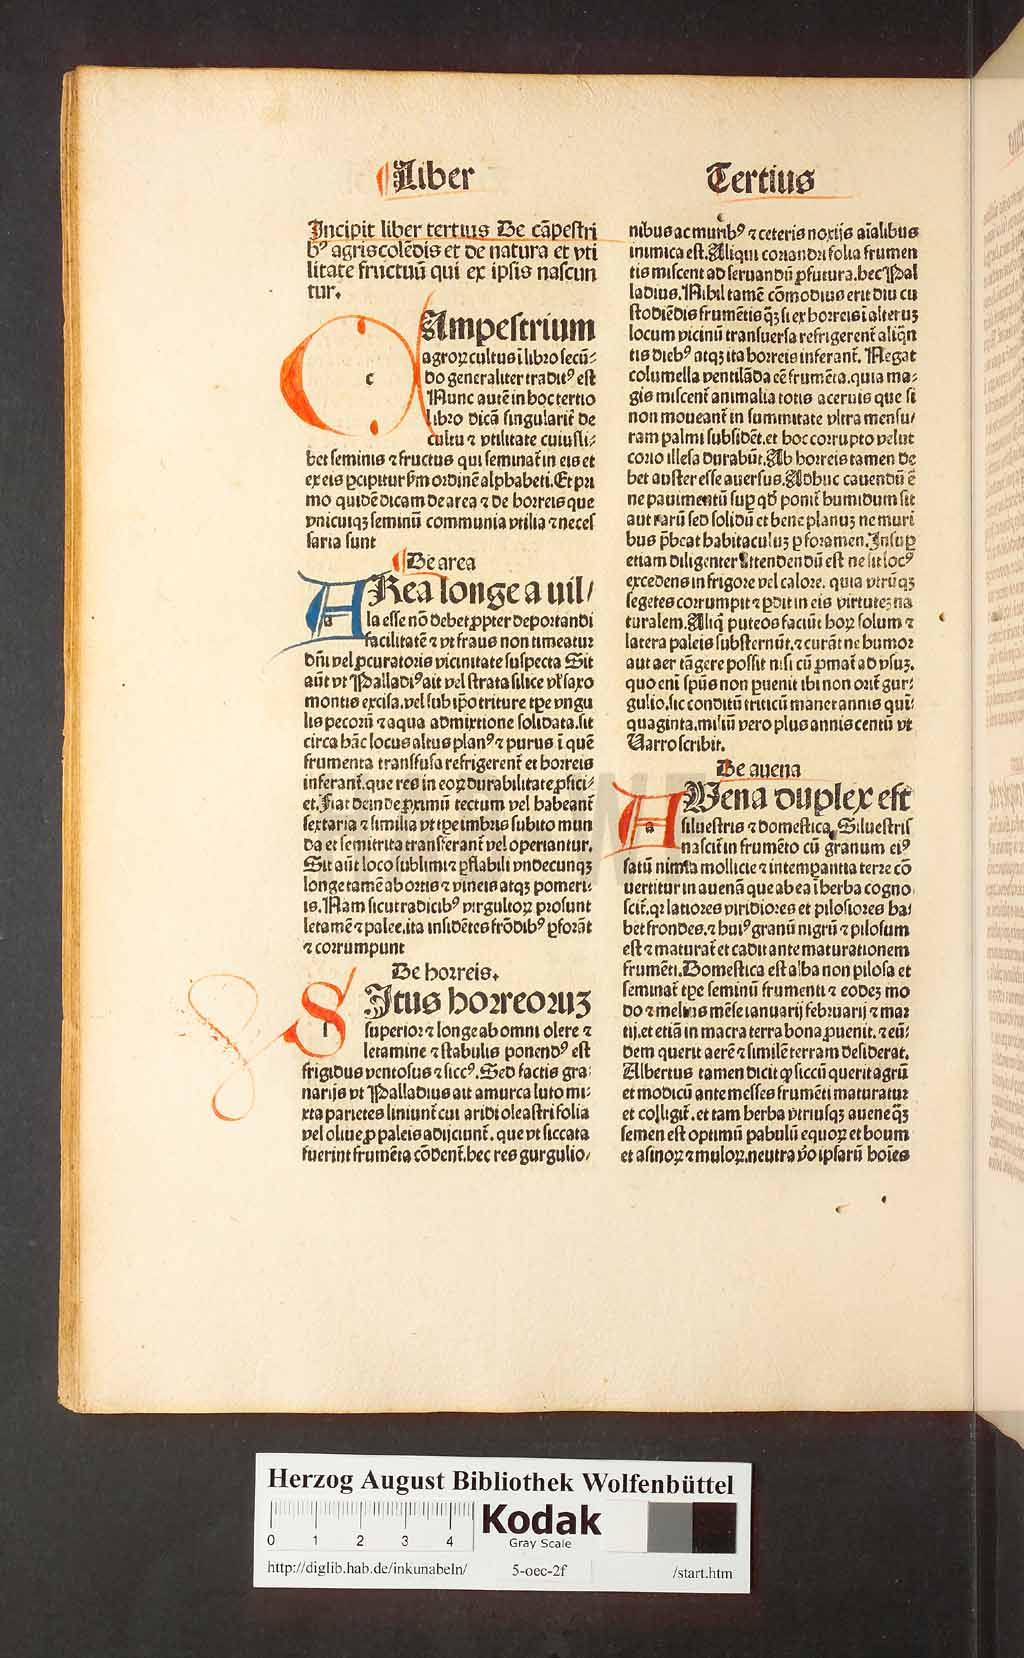 Liber
Tertius
Incipit liber tertius De cāpestri
bꝰ agris colēdis et de natura et vti
litate fructuū qui ex ipsis nascun
tur.
CAmpestrium
agroꝝ cultus ī libro secū⸗
do generaliter traditꝰ est
Nunc autē in hoc tertio
libro dicā singularit̄ de
cultu ⁊ vtilitate cuiusli⸗
bet seminis ⁊ fructus qui seminat̄ in eis et
ex eis ꝑcipitur ẜm ordinē alphabeti. Et pri
mo quidē dicam de area ⁊ de horreis que
vnicuiqꝫ seminū communia vtilia ⁊ neces
saria sunt
De area
ARea longe a uil/
la esse nō debet ꝓpter deportandi
facilitatē ⁊ vt fraus non timeatur
dn̄i vel ꝓcuratoris vicinitate suspecta Sit
aūt vt Palladiꝰ ait vel strata silice vl̓ saxo
montis excisa. vel sub ip̄o triture tp̄e vngu
lis pecorū ⁊ aqua admixtione solidata. sit
circa hāc locus altus planꝰ ⁊ purus ī quē
frumenta transfusa refrigerent̄ et horreis
inferant̄. que res in eoꝝ durabilitate ꝓfici⸗
et. Fiat deinde ꝓximū tectum vel habeant̄
sextaria ⁊ similia vt tp̄e imbris subito mun
da et semitrita transferant̄ vel operiantur.
Sit aūt loco sublimi ⁊ ꝑflabili vndecunqꝫ
longe tamē ab ortis ⁊ vineis atqꝫ pomeri⸗
is. Nam sicut radicibꝰ virgultoꝝ prosunt
letamē ⁊ palee. ita insidētes frōdibꝰ ꝑforāt
⁊ corrumpunt
De horreis.
SItus horreoruꝫ
superior ⁊ longe ab omni olere ⁊
letamine ⁊ stabulis ponendꝰ est
frigidus ventosus ⁊ siccꝰ. Sed factis gra⸗
narijs vt Palladius ait amurca luto mi⸗
xta parietes liniunt̄ cui aridi oleastri folia
vel oliue ꝓ paleis adijciunt̄. que vt siccata
fuerint frumēta cōdent̄. hec res gurgulio/
nibus ac muribꝰ ⁊ ceteris noxijs aīalibus
inimica est. Aliqui coriandri folia frumen
tis miscent ad seruandū ꝓfutura. hec Pal
ladius. Nihil tamē cōmodius erit diu cu
stodiēdis frumētis qꝫ si ex horreis ī alteruꝫ
locum vicinū transuersa refrigerent̄ aliqn̄
tis diebꝰ atqꝫ ita horreis inferant̄. Negat
columella ventilāda eē frumēta. quia ma⸗
gis miscent̄ animalia totis aceruis que si
non moueant̄ in summitate vltra mensu/
ram palmi subsidēt. et hoc corrupto velut
corio illesa durabūt. Ab horreis tamen de
bet auster esse auersus. Adhuc cauendū ē
ne pauimentū suꝑ qd̓ ponit̄ humidum sit
aut rarū sed solidū et bene planuꝫ ne muri
bus p̄beat habitaculuꝫ ꝑ foramen. Insuꝑ
etiam diligenter attendendū est ne sit locꝰ
excedens in frigore vel calore. quia vtrūqꝫ
segetes corrumpit ⁊ ꝑdit in eis virtuteꝫ na
turalem. Aliq̄ puteos faciūt hoꝝ solum ⁊
latera paleis substernūt. ⁊ curāt ne humor
aut aer tāgere possit nisi cū ꝓmat̄ ad vsuꝫ.
quo eni sp̄us non ꝑuenit ibi non orit̄ gur⸗
gulio. sic conditū triticū manet annis qui⸗
quaginta. miliū vero plus annis centū vt
Varro scribit.
De auena
AUena duplex est
siluestris ⁊ domestica. Siluestris
nascit̄ in frumēto cū granum eiꝰ
satū nimia mollicie ⁊ intemꝑantia terre cō
uertitur in auenā que ab ea ī herba cogno
scit̄. qr latiores viridiores et pilosiores ha⸗
bet frondes. ⁊ huiꝰ granū nigrū ⁊ pilosum
est ⁊ maturat̄ et cadit ante maturationem
frumēti. Domestica est alba non pilosa et
seminat̄ tp̄e seminū frumenti ⁊ eodeꝫ mo
do ⁊ melius mēse ianuarij februarij ⁊ mar
tij. et etiā in macra terra bona ꝓuenit. ⁊ eū⸗
dem querit aerē ⁊ similē terram desiderat.
Albertus tamen dicit ꝙ siccū querit agrū
et modicū ante messes frumēti maturatur
et colligit̄. et tam herba vtriusqꝫ auene qꝫ
semen est optimū pabulū equoꝝ et boum
et asinoꝝ ⁊ muloꝝ. neutra v̓o ipsarū hoīes
Herzog August Bibliothek Wolfenbüttel
0 1 2 3 4
Kodak
Gray Scale
http://diglib.hab.de/inkunabeln/ 5-oec-2f /start.htm